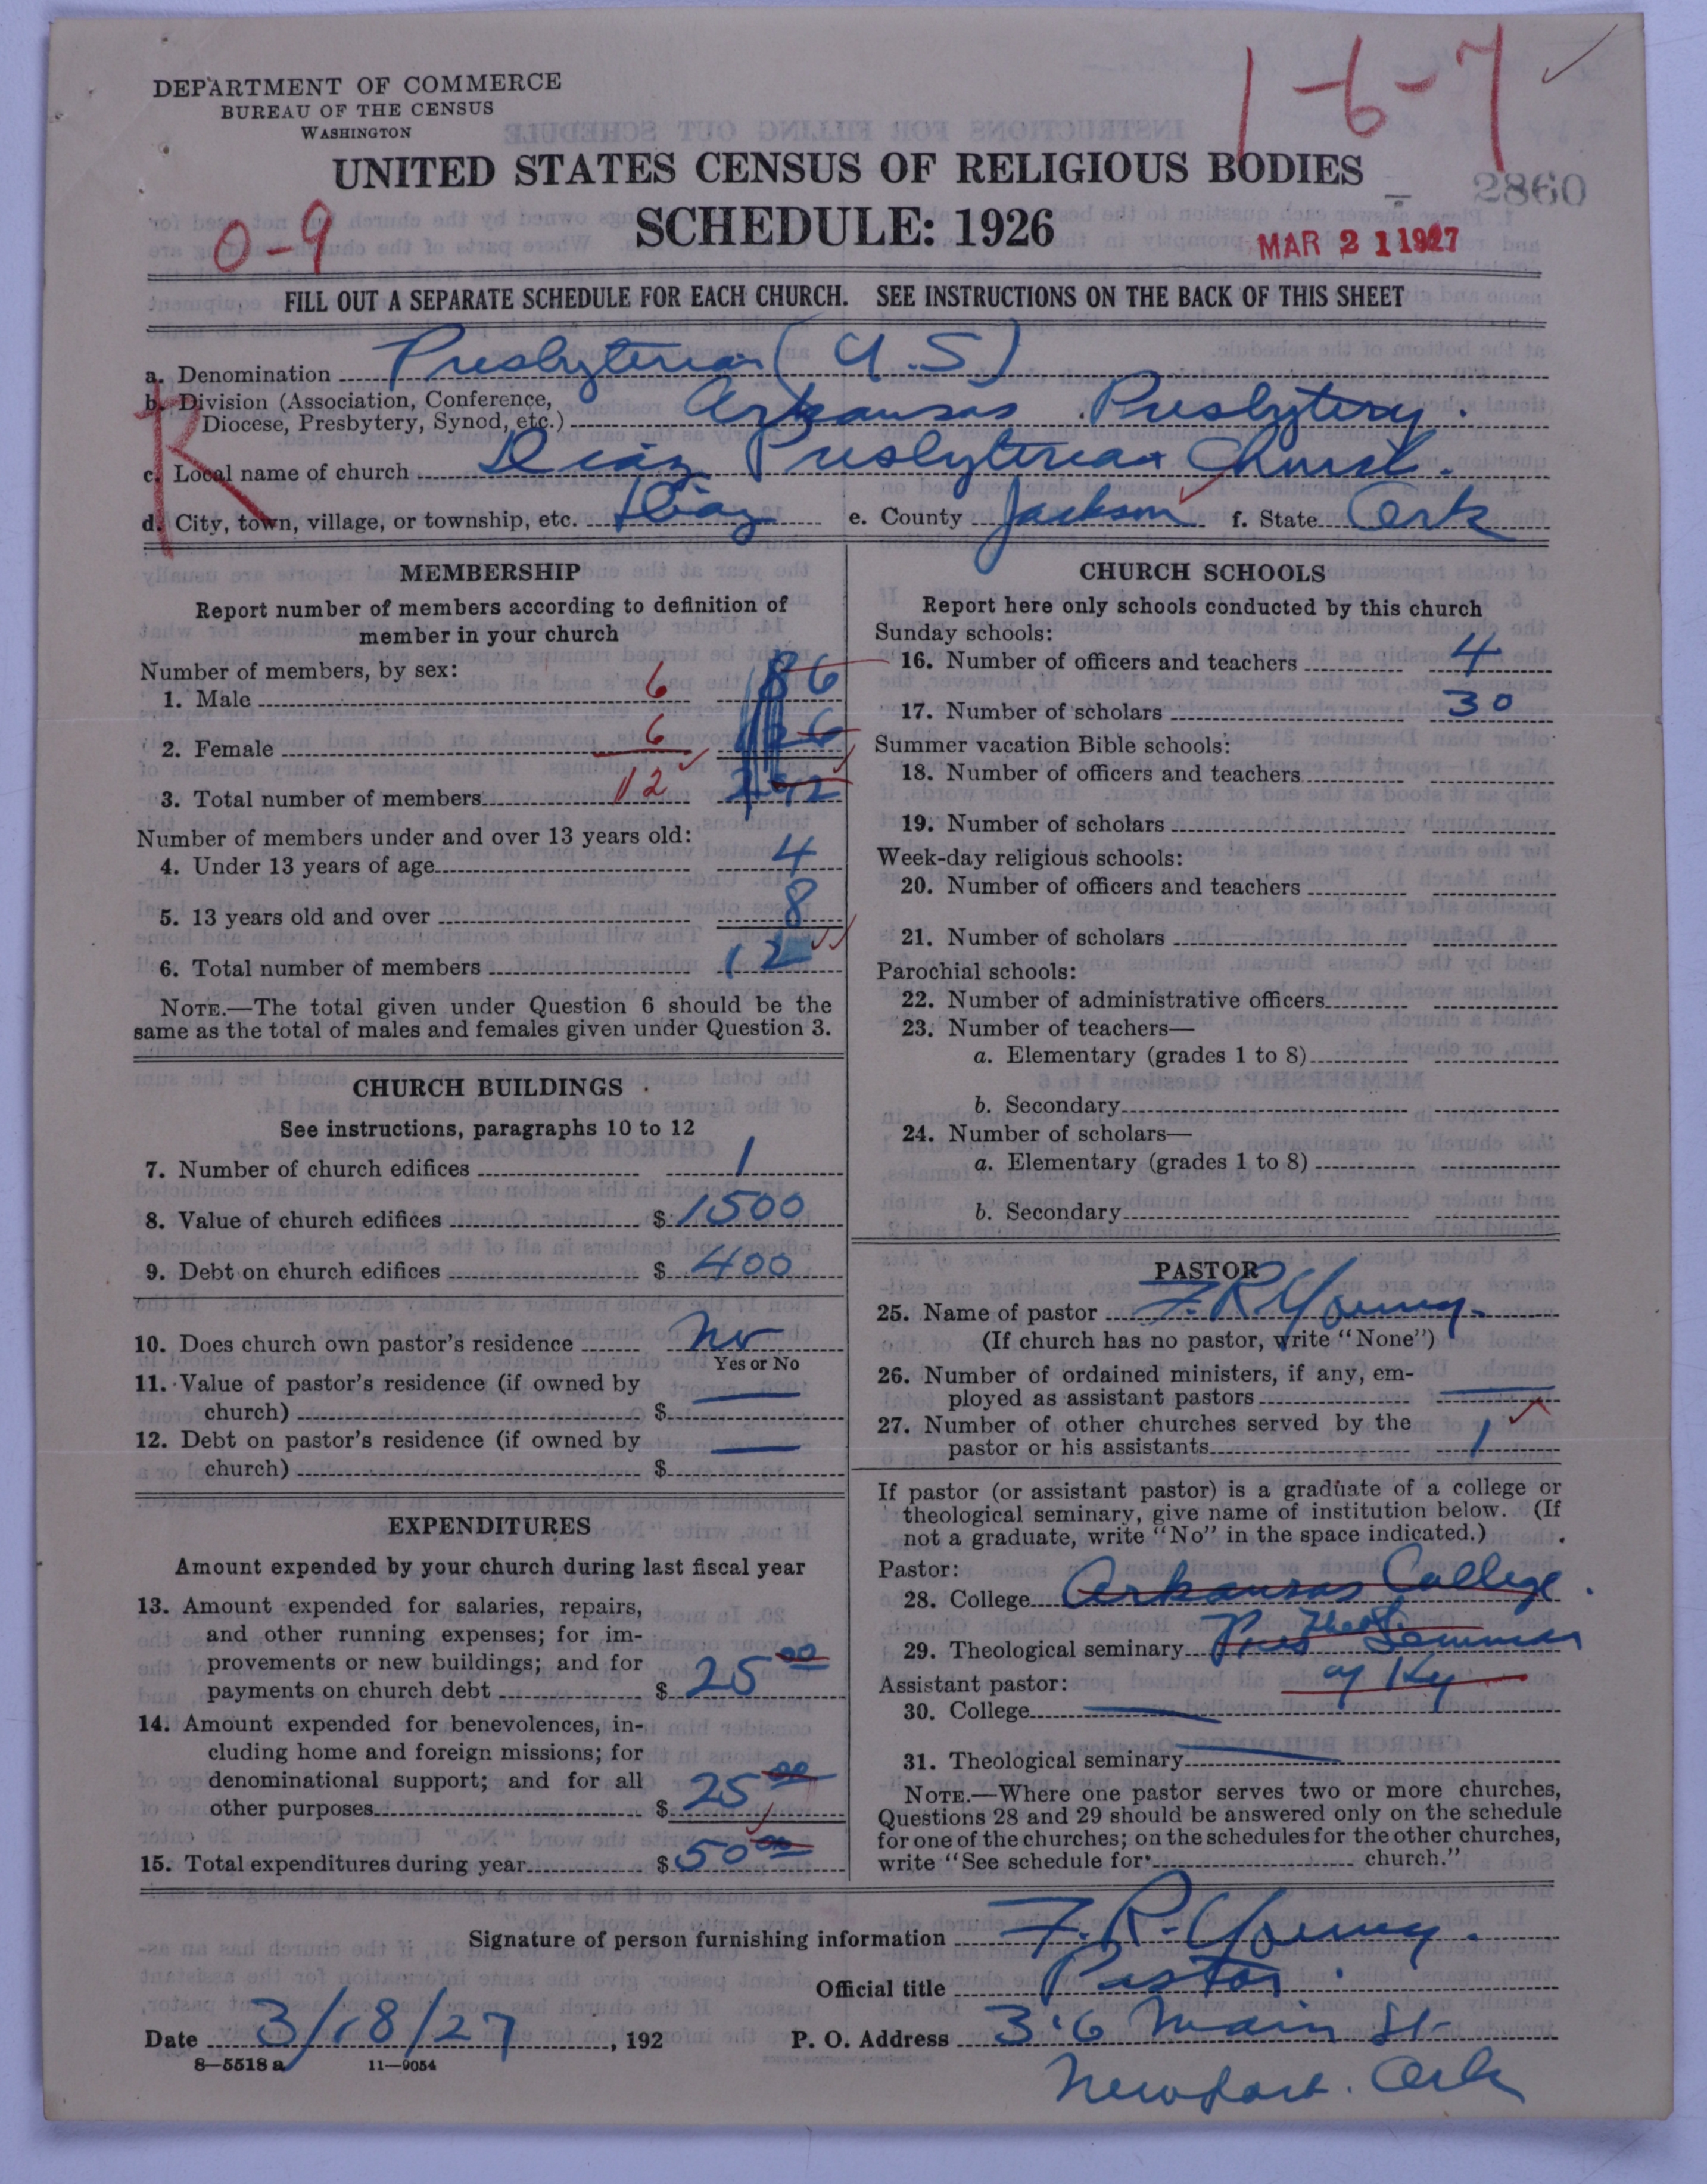 DEPARTMENT OF COMMERCE
BUREAU OF THE CENSUS
WASHINGTON
1-6-7
UNITED STATES CENSUS OF RELIGIOUS BODIES
2860
0-9
SCHEDULE: 1926
MAR 21 1927
FILL OUT A SEPARATE SCHEDULE FOR EACH CHURCH. SEE INSTRUCTIONS ON THE BACK OF THIS SHEET
a. Denomination Presbyterian (U.S)
b. Division (Association, Conference,
Diocese, Presbytery, Synod, etc.) Arkansas Presbytery.
c. Local name of church Diaz Presbyterian Church.
d. City, town, village, or township, etc. Diaz e. County Jackson f. State Ark
MEMBERSHIP
Report number of members according to definition of
member in your church
Number of members, by sex:
1. Male 6 6
2. Female 6 6
3. Total number of members 12 12
Number of members under and over 13 years old:
4. Under 13 years of age 4
5. 13 years old and over 8
6. Total number of members 12
NOTE.—The total given under Question 6 should be the
same as the total of males and females given under Question 3.
CHURCH BUILDINGS
See instructions, paragraphs 10 to 12
7. Number of church edifices 1
8. Value of church edifices $ 1500
9. Debt on church edifices $ 400
10. Does church own pastor's residence No
Yes or No
11. Value of pastor's residence (if owned by
church) $
12. Debt on pastor's residence (if owned by
church) $
EXPENDITURES
Amount expended by your church during last fiscal year
13. Amount expended for salaries, repairs,
and other running expenses; for im-
provements or new buildings; and for
payments on church debt $ 25 00
14. Amount expended for benevolences, in-
cluding home and foreign missions; for
denominational support; and for all
other purposes $ 25 00
15. Total expenditures during year $ 50 00
CHURCH SCHOOLS
Report here only schools conducted by this church
Sunday schools:
16. Number of officers and teachers 4
17. Number of scholars 30
Summer vacation Bible schools:
18. Number of officers and teachers
19. Number of scholars
Week-day religious schools:
20. Number of officers and teachers
21. Number of scholars
Parochial schools:
22. Number of administrative officers
23. Number of teachers—
a. Elementary (grades 1 to 8)
b. Secondary
24. Number of scholars—
a. Elementary (grades 1 to 8)
b. Secondary
PASTOR
25. Name of pastor F. R. Young.
(If church has no pastor, write "None")
26. Number of ordained ministers, if any, em-
ployed as assistant pastors
27. Number of other churches served by the
pastor or his assistants 1
If pastor (or assistant pastor) is a graduate of a college or
theological seminary, give name of institution below. (If
not a graduate, write "No" in the space indicated.)
Pastor:
28. College Arkansas College.
29. Theological seminary Pres Theo Seminar
of Ky
Assistant pastor:
30. College
31. Theological seminary
NOTE.—Where one pastor serves two or more churches,
Questions 28 and 29 should be answered only on the schedule
for one of the churches; on the schedules for the other churches,
write "See schedule for church."
Signature of person furnishing information F. R. Young.
Official title Pastor.
Date 3/18/27, 192 P. O. Address Main St
Newport. Ark
8—5518 a 11—9054